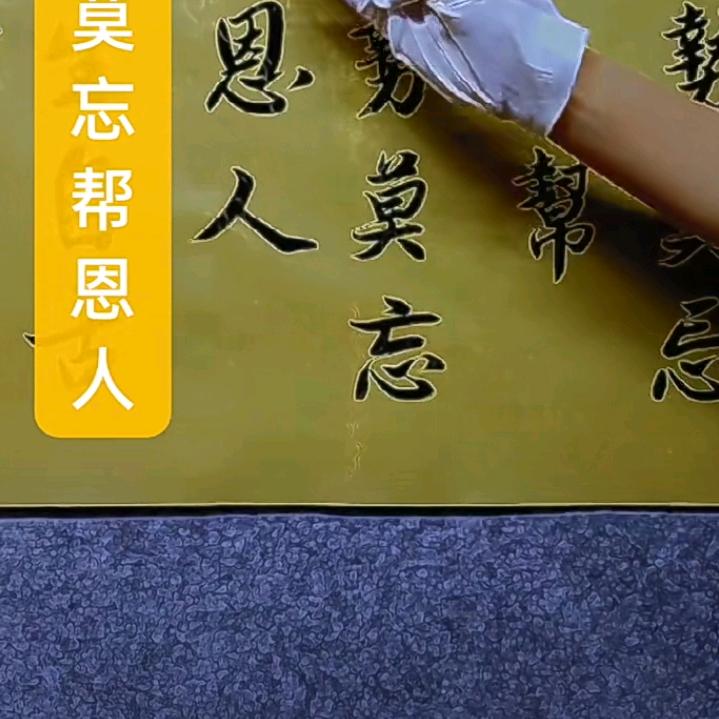 莫忘帮恩人
幫
莫忘
恩人